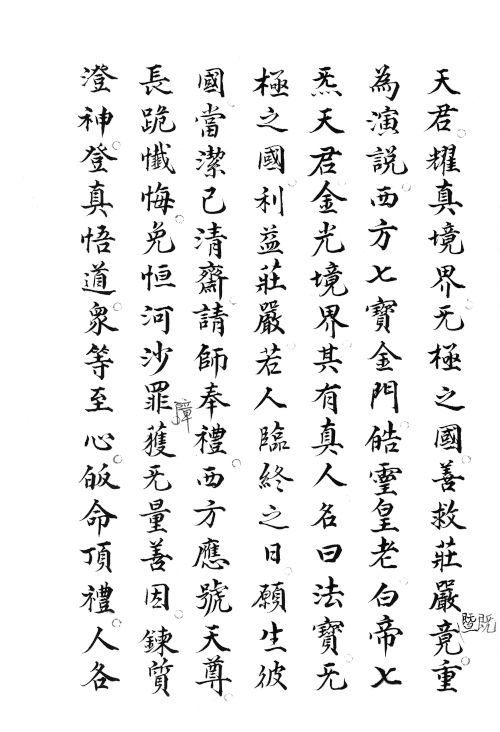 天君耀真境界无極之國善救莊嚴竟重
暨既
為演説西方七寶金門皓靈皇老白帝七
炁天君金光境界其有真人名曰法寶无
極之國利益莊嚴若人臨終之日願生彼
國當潔己清齋請師奉禮西方應號天尊
長跪懺悔免恒河沙罪獲无量善因鍊質
障
澄神登真悟道衆等至心皈命頂禮人各